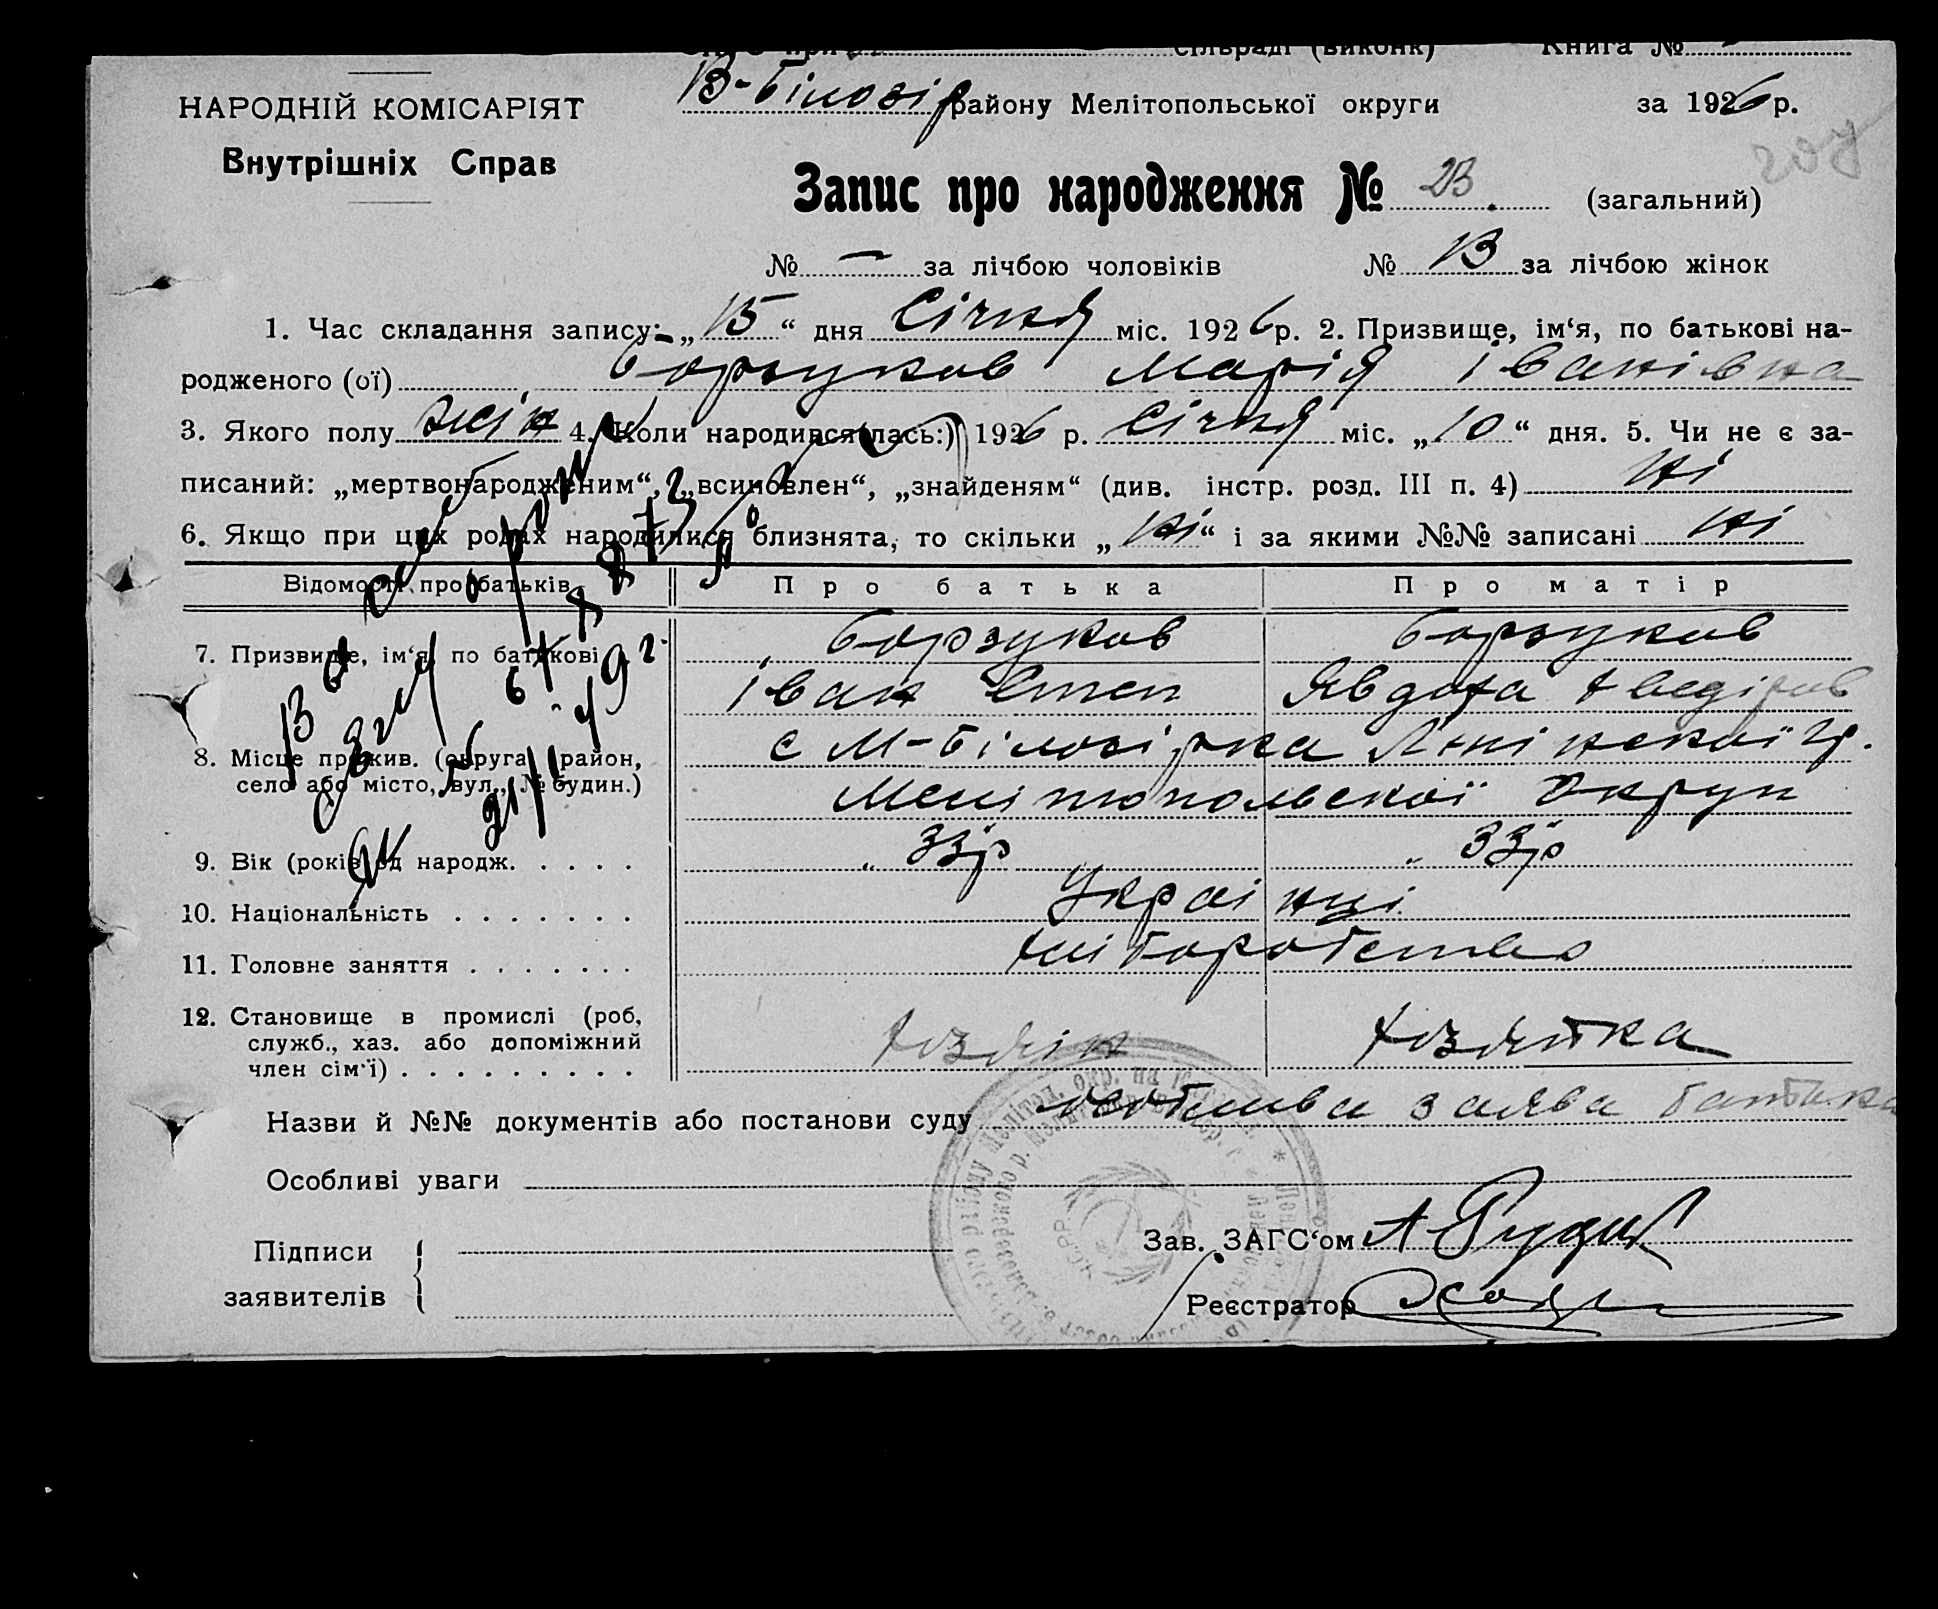 сільраді (виконк) Книга №
НАРОДНІЙ КОМІСАРІЯТ
Внутрішніх Справ
В-Білозір району Мелітопольської округи за 1926 р.
Запис про народження № 23. (загальний)
№ — за лічбою чоловіків № 13 за лічбою жінок
1. Час складання запису: „15“ дня Січня міс. 1926 р. 2. Призвище, ім‘я, по батькові на-
родженого (ої) Борзуков Марія Іванівна
3. Якого полу жін 4. Коли народився(лась:) 1926 р. Січня міс. „10“ дня. 5. Чи не є за-
писаний: „мертвонародженим“, „всиновлен“, „знайденям“ (див. інстр. розд. III п. 4) ні
6. Якщо при цих родах народилися близнята, то скільки „ні“ і за якими №№ записані ні
Відомості про батьків Про батька Про матір
7. Призвище, ім‘я, по батькові Борзуков Борзуков
Іван Степ Явдоха
8. Місце прожив. (округа, район, с М-Білозірка
село або місто, вул., № будин.) Мелітопольскої Округи
9. Вік (років од народж. . . . . 33 р 33 р
10. Національність . . . . . . . Українці
11. Головне заняття . . . . . . . хліборобство
12. Становище в промислі (роб, хозяін хозяйка
служб., хаз. або допоміжний
член сім‘ї) . . . . . . . . . .
Назви й №№ документів або постанови суду особлива заява батька
Особливі уваги
Підписи Зав. ЗАГС‘ом
заявителів Реєстратор